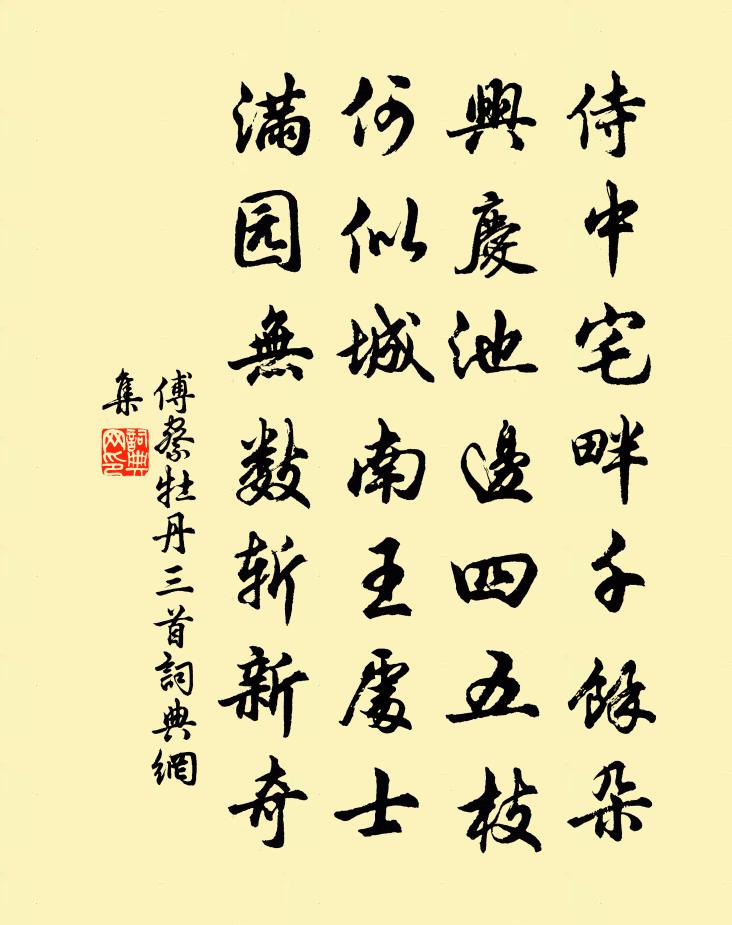 侍中宅畔千餘朵
興慶池邊四五枝
何似城南王處士
滿园無数斩新奇
傅察牡丹三首詞典網
集
詞典網印